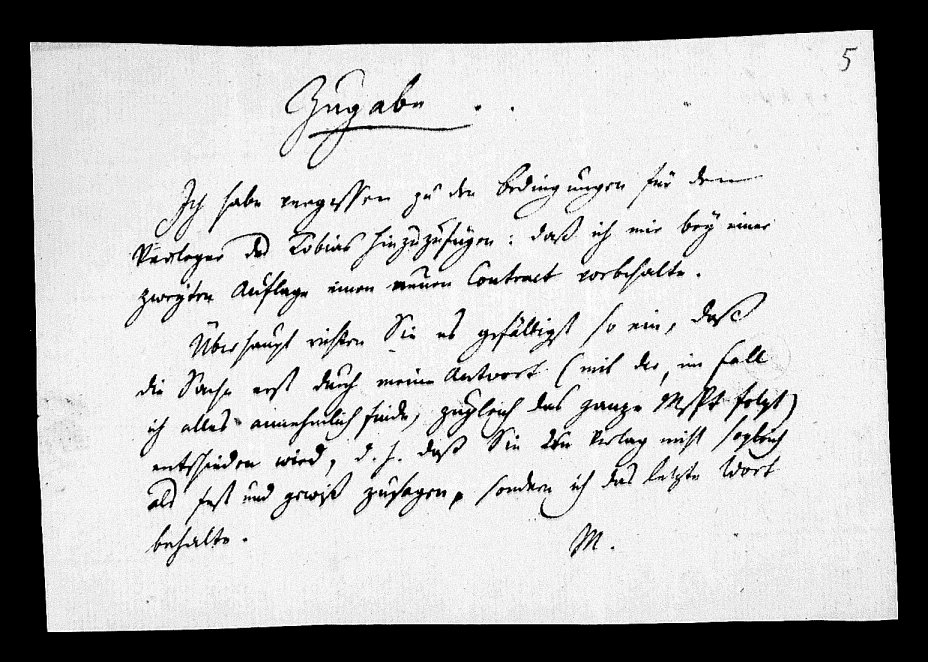 5
Zugabe . .
Ich habe vergessen zu den Bedingungen für den
Verleger des Tobias hinzuzufügen: daß ich mir bey einer
zweyten Auflage einen neuen Contract vorbehalte.
Überhaupt richten Sie es gefälligst so ein, daß
die Sache erst durch meine Antwort (mit der, im Fall
ich alles annehmlich finde, zugleich das ganze MsPt folgt)
entschieden wird, d. h. daß Sie den Verlag nicht sogleich
als fest und gewiß zusagen, sondern ich das letzte Wort
behalte.
M.